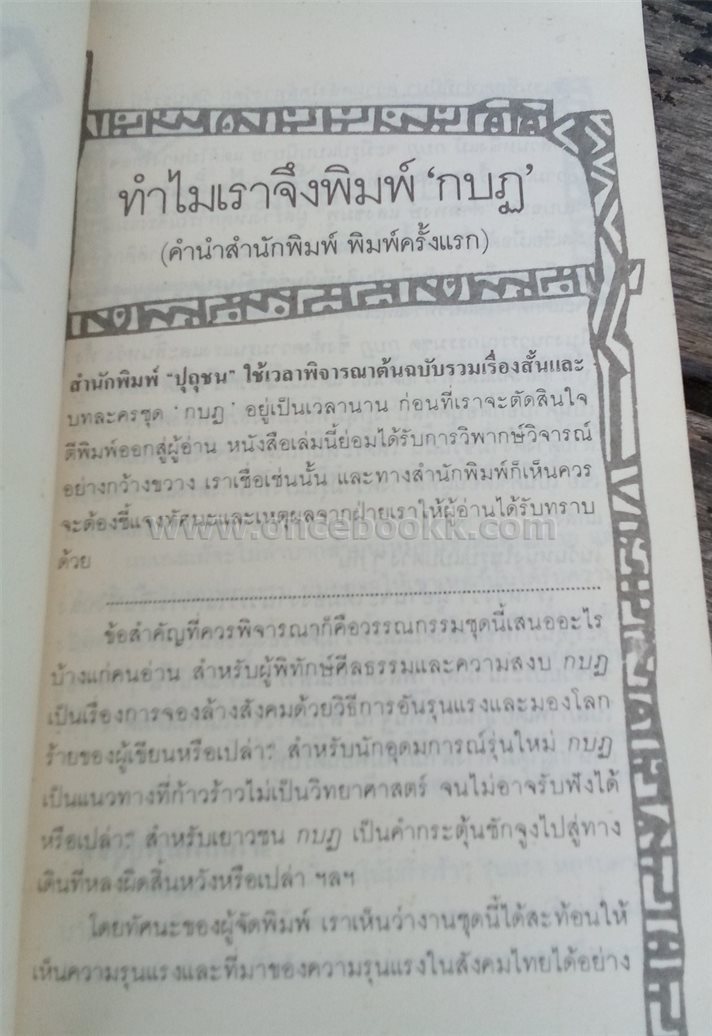 ทำไมเราจึงพิมพ์ ‘กบฏ’
(คำนำสำนักพิมพ์ พิมพ์ครั้งแรก)
สำนักพิมพ์ “ปุถุชน” ใช้เวลาพิจารณาต้นฉบับรวมเรื่องสั้นและ
บทละครชุด ‘กบฏ’ อยู่เป็นเวลานาน ก่อนที่เราจะตัดสินใจ
ตีพิมพ์ออกสู่ผู้อ่าน หนังสือเล่มนี้ย่อมได้รับการวิพากษ์วิจารณ์
อย่างกว้างขวาง เราเชื่อเช่นนั้น และทางสำนักพิมพ์ก็เห็นควร
จะต้องชี้แจงทัศนะและเหตุผลจากฝ่ายเราให้ผู้อ่านได้รับทราบ
www.oncebookk.com
ด้วย
ข้อสำคัญที่ควรพิจารณาก็คือวรรณกรรมชุดนี้เสนออะไร
บ้างแก่คนอ่าน สำหรับผู้พิทักษ์ศีลธรรมและความสงบ กบฏ
เป็นเรื่องการจองล้างสังคมด้วยวิธีการอันรุนแรงและมองโลก
ร้ายของผู้เขียนหรือเปล่า? สำหรับนักอุดมการณ์รุ่นใหม่ กบฏ
เป็นแนวทางที่ก้าวร้าวไม่เป็นวิทยาศาสตร์ จนไม่อาจรับฟังได้
หรือเปล่า? สำหรับเยาวชน กบฏ เป็นคำกระตุ้นชักจูงไปสู่ทาง
เดินที่หลงผิดสิ้นหวังหรือเปล่า ฯลฯ
โดยทัศนะของผู้จัดพิมพ์ เราเห็นว่างานชุดนี้ได้สะท้อนให้
เห็นความรุนแรงและที่มาของความรุนแรงในสังคมไทยได้อย่าง